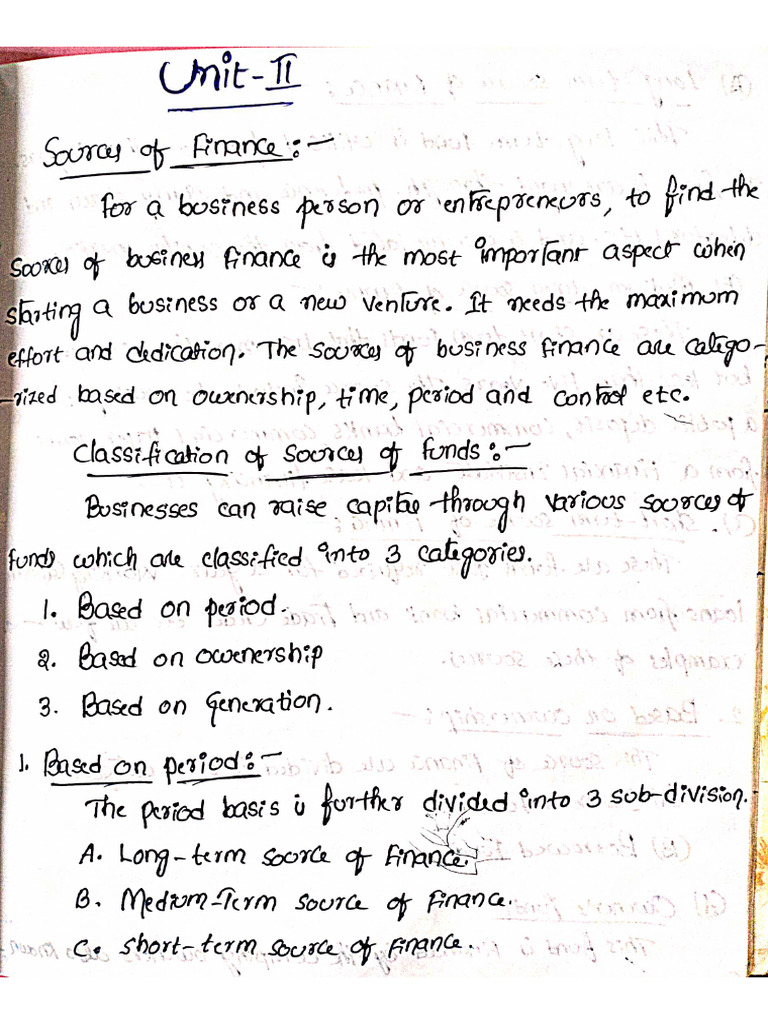 Unit-II
Sources of Finance:-
For a business person or entrepreneurs, to find the
sources of business finance is the most important aspect when
starting a business or a new venture. It needs the maximum
effort and dedication. The sources of business finance are catego-
-rized based on ownership, time, period and control etc.
Classification of sources of funds:-
Businesses can raise capital through various sources of
funds which are classified into 3 categories.
1. Based on period.
2. Based on ownership
3. Based on Generation.
1. Based on period:-
The period basis is further divided into 3 sub-division.
A. Long-term source of finance.
B. Medium-Term source of finance.
C. Short-term source of finance.